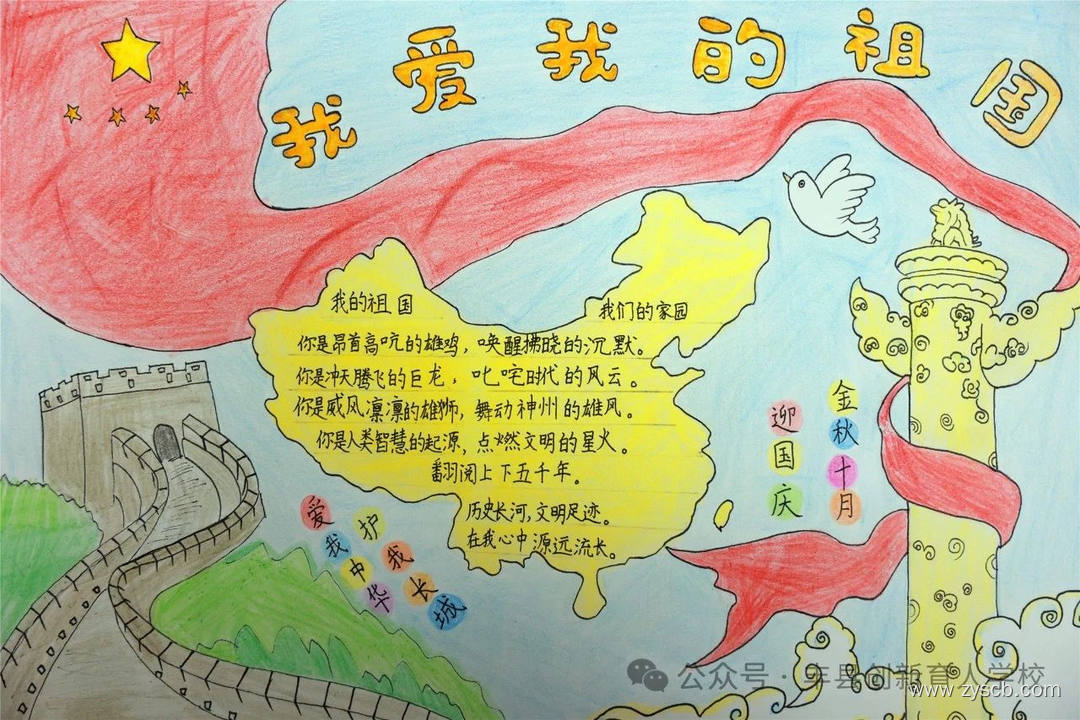 我爱我的祖国
我的祖国
我们的家园
你是昂首高吭的雄鸡，唤醒拂晓的沉默。
你是冲天腾飞的巨龙，叱咤时代的风云。
你是威风凛凛的雄狮，舞动神州的雄风。
你是人类智慧的起源，点燃文明的星火。
翻阅上下五千年。
历史长河，文明足迹。
在我心中源远流长。
金秋十月
迎国庆
爱我中华
护我长城
公众号·丰县创新育人学校
www.zyscb.com